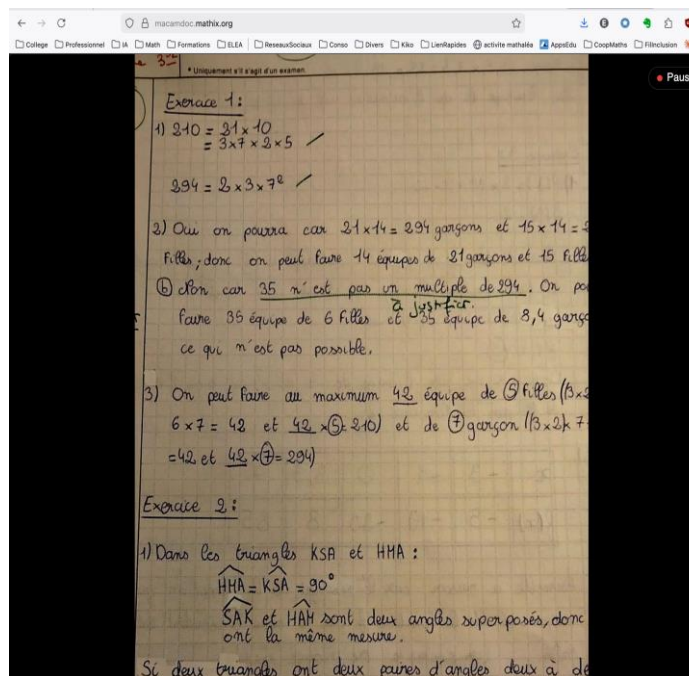 macamdoc.mathix.org
College Professionnel IA Math Formations ELEA ReseauxSociaux Conso Divers Kiko LienRapides activite mathalée AppsEdu CoopMaths FilInclusion
Paus
e 3
* Uniquement s'il s'agit d'un examen.
Exercice 1:
1) 210 = 21 × 10
= 3 × 7 × 2 × 5
294 = 2 × 3 × 7²
2) Oui on pourra car 21 × 14 = 294 garçons et 15 × 14 = 2
Filles; donc on peut faire 14 équipes de 21 garçons et 15 Fille
b Non car 35 n'est pas un multiple de 294. On po
à justifier.
faire 35 équipe de 6 Filles et 35 équipe de 8,4 garço
ce qui n'est pas possible.
3) On peut faire au maximum 42 équipe de 5 filles (3×2
6 × 7 = 42 et 42 × 5 = 210) et de 7 garçon ((3×2)×7
=42 et 42 × 7 = 294)
Exercice 2:
1) Dans les triangles KSA et HMA :
HMA = KSA = 90°
SAK et HAM sont deux angles superposés, donc
ont la même mesure.
Si deux triangles ont deux paires d'angles deux à de